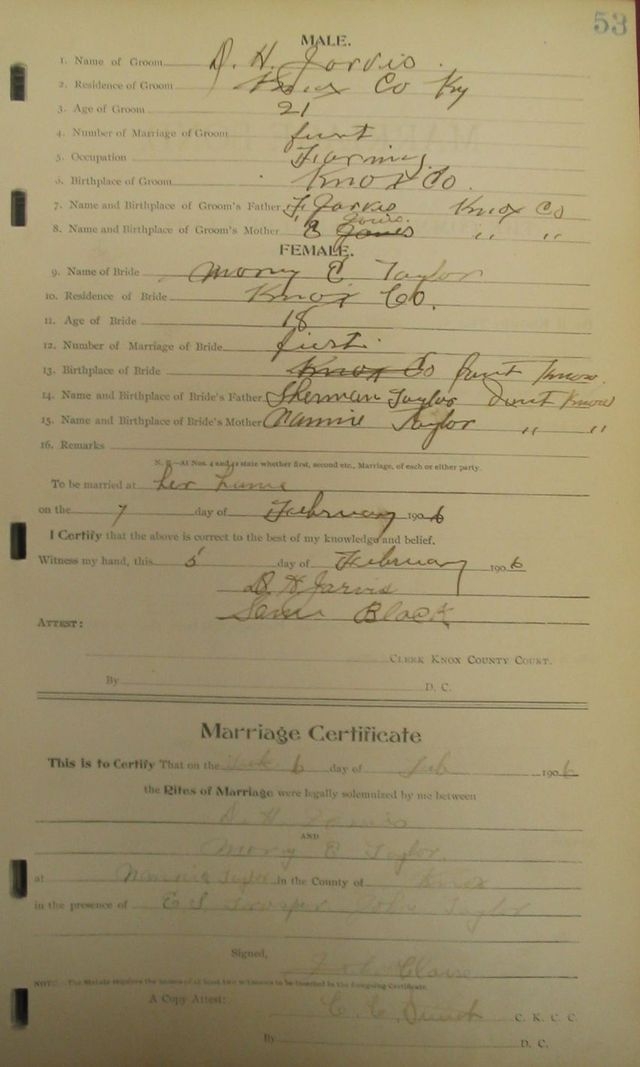 53
MALE.
1. Name of Groom D. H. Jarvis
2. Residence of Groom Knox Co Ky
3. Age of Groom 21
4. Number of Marriage of Groom first
5. Occupation Farming
6. Birthplace of Groom Knox Co.
7. Name and Birthplace of Groom's Father F Jarvis Knox Co
8. Name and Birthplace of Groom's Mother E Jones " "
FEMALE.
9. Name of Bride Mary E Taylor
10. Residence of Bride Knox Co.
11. Age of Bride 18
12. Number of Marriage of Bride first.
13. Birthplace of Bride Knox Co Dont Know.
14. Name and Birthplace of Bride's Father Sherman Taylor Dont Know
15. Name and Birthplace of Bride's Mother Nannie Taylor " "
16. Remarks
N. B.—At Nos. 4 and 12 state whether first, second etc., Marriage, of each or either party.
To be married at her home
on the 7 day of February 1906
I Certify that the above is correct to the best of my knowledge and belief.
Witness my hand, this 5 day of February 1906
D. H. Jarvis
Sam Black
ATTEST:
CLERK KNOX COUNTY COURT.
By D. C.
Marriage Certificate
This is to Certify That on the 6 day of Feb 1906
the Rites of Marriage were legally solemnized by me between
D. H. Jarvis
AND
Mary E Taylor.
at Nannie Taylor in the County of Knox
in the presence of E S Trosper John Taylor
Signed,
NOTE.—The Statute requires the names of at least two witnesses to be inserted in the foregoing Certificate.
A Copy Attest: C. C. K. C. C.
By D. C.